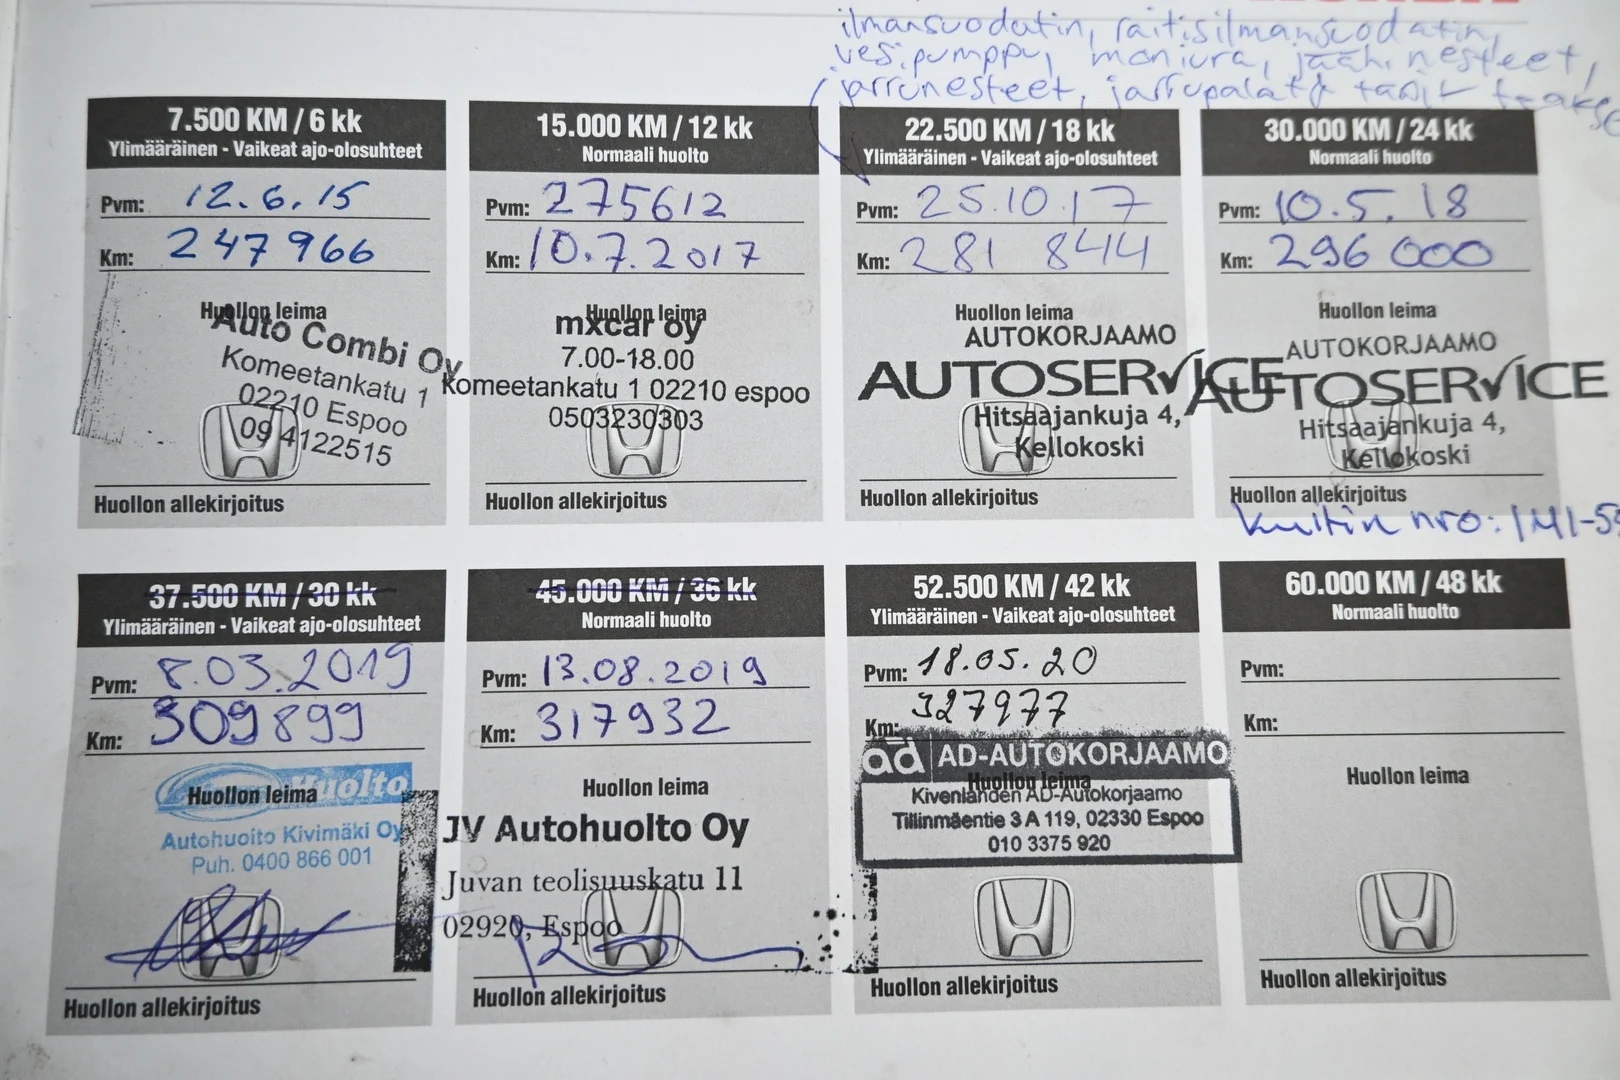 ilmansuodatin, raitisilmansuodatin,
vesipumppu, moniura, jääh. nesteet,
jarrunesteet, jarrupalat
7.500 KM / 6 kk
Ylimääräinen - Vaikeat ajo-olosuhteet
Pvm: 12.6.15
Km: 247 966
Huollon leima
Auto Combi Oy
Komeetankatu 1
02210 Espoo
09 4122515
Huollon allekirjoitus
15.000 KM / 12 kk
Normaali huolto
Pvm: 275612
Km: 10.7.2017
Huollon leima
mxcar oy
7.00-18.00
Komeetankatu 1 02210 espoo
0503230303
Huollon allekirjoitus
22.500 KM / 18 kk
Ylimääräinen - Vaikeat ajo-olosuhteet
Pvm: 25.10.17
Km: 281 844
Huollon leima
AUTOKORJAAMO
AUTOSERVICE
Hitsaajankuja 4,
Kellokoski
Huollon allekirjoitus
30.000 KM / 24 kk
Normaali huolto
Pvm: 10.5.18
Km: 296 000
Huollon leima
AUTOKORJAAMO
AUTOSERVICE
Hitsaajankuja 4,
Kellokoski
Huollon allekirjoitus
Kuitin nro:
37.500 KM / 30 kk
Ylimääräinen - Vaikeat ajo-olosuhteet
Pvm: 8.03.2019
Km: 309899
Huollon leima
Huolto
Autohuolto Kivimäki Oy
Puh. 0400 866 001
Huollon allekirjoitus
45.000 KM / 36 kk
Normaali huolto
Pvm: 13.08.2019
Km: 317932
Huollon leima
JV Autohuolto Oy
Juvan teollisuuskatu 11
02920, Espoo
Huollon allekirjoitus
52.500 KM / 42 kk
Ylimääräinen - Vaikeat ajo-olosuhteet
Pvm: 18.05.20
Km: 327977
ad AD-AUTOKORJAAMO
Huollon leima
Kivenlahden AD-Autokorjaamo
Tillinmäentie 3 A 119, 02330 Espoo
010 3375 920
Huollon allekirjoitus
60.000 KM / 48 kk
Normaali huolto
Pvm:
Km:
Huollon leima
Huollon allekirjoitus